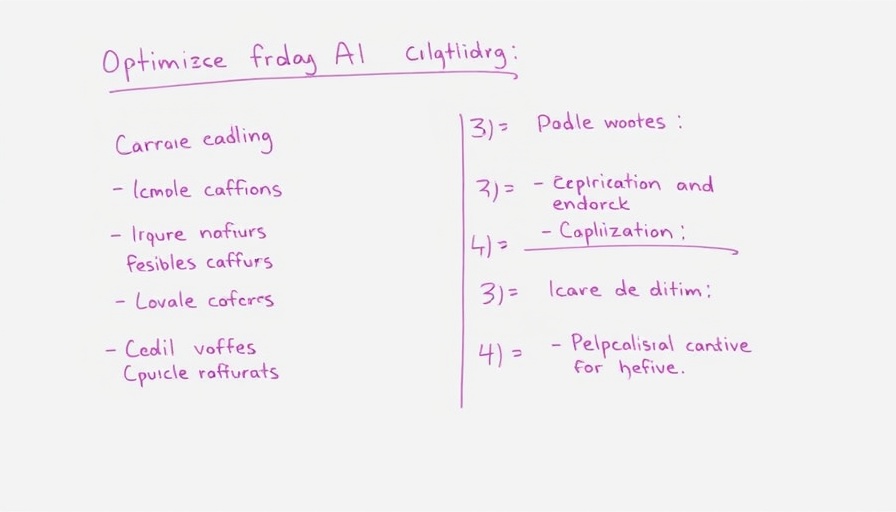 Optimizce frday AI cılgtlidrg:
Carraıe eadling
- Icmole caffions
- Irqure nafiurs
fesibles caffurs
- Lovale coferes
- Cedil voffes
Cpuicle roffurats
3)= Padle wootes :
3)= - Ceplrication and
endorck
4)= - Caplıization :
3)= Icare de ditim:
4)= - Pelpcalisıal cantive
for hefive.